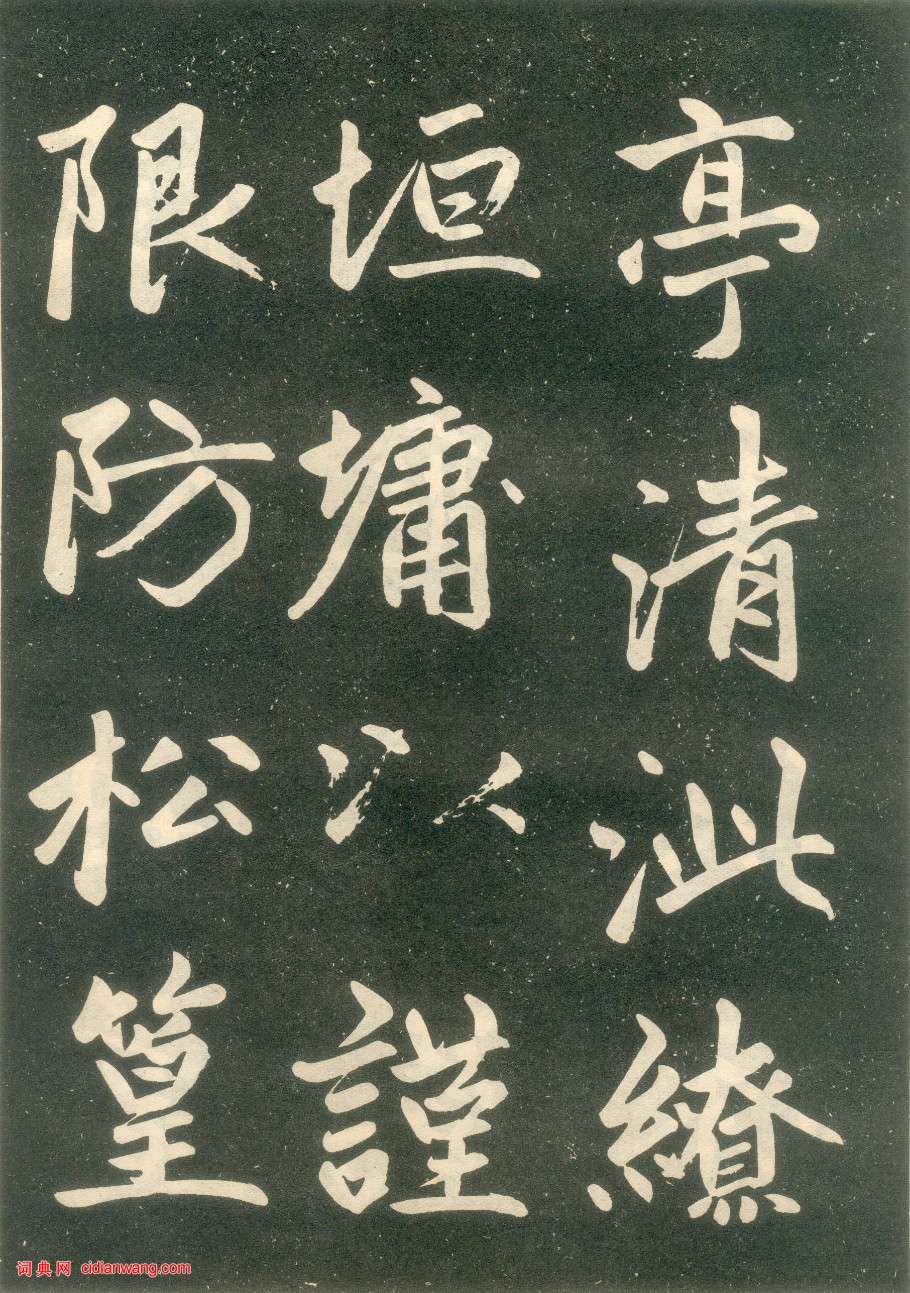 亭清泚繚
垣墉以謹
限防松篁
词典网 cidianwang.com